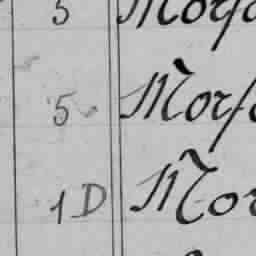 5 Morf
5 Morf
1 D Mor